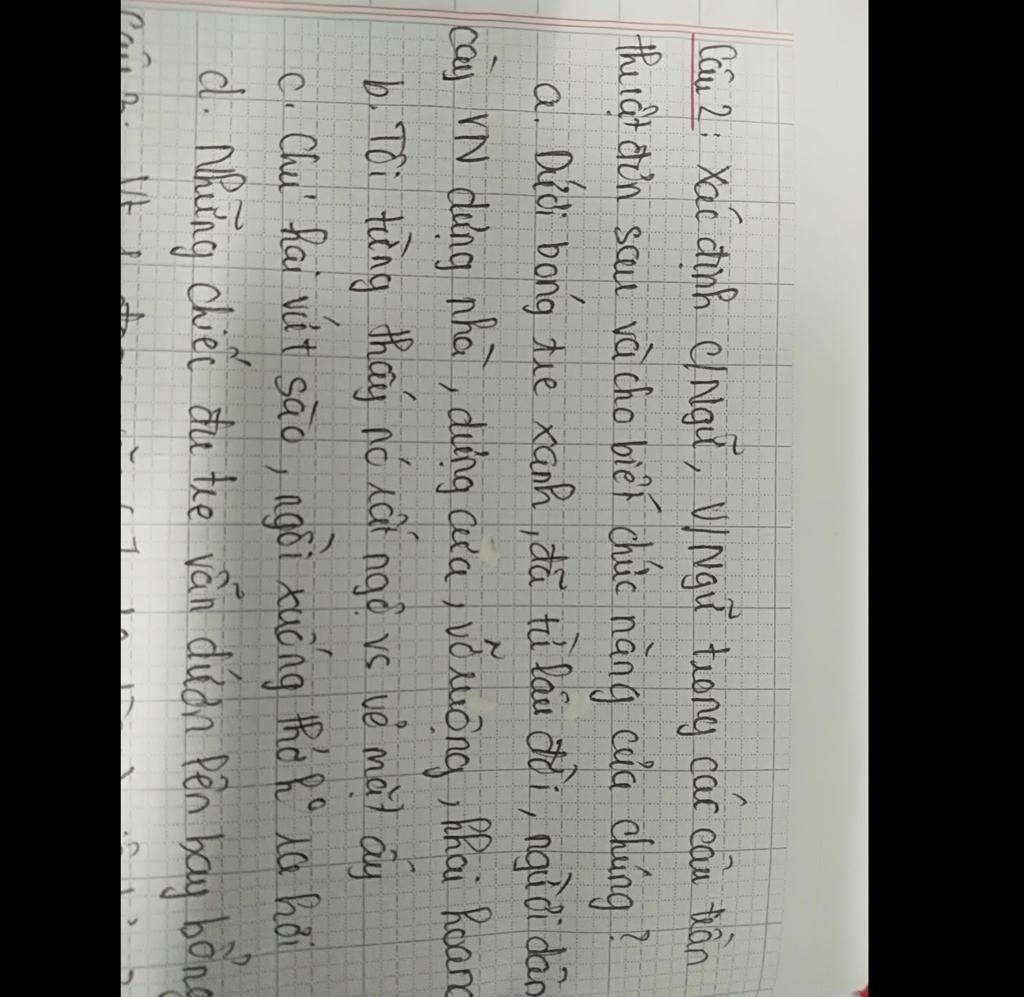 Câu 2: Xác định C/Ngữ, V/Ngữ trong các câu trần
thuật đơn sau và cho biết chức năng của chúng?
a. Dưới bóng tre xanh, đã từ lâu đời, người dân
cày VN dựng nhà, dựng cửa, vỡ ruộng, khai hoang
b. Tôi từng thấy nó rất ngộ vs vẻ mặt ấy
c. Chú hai vứt sào, ngồi xuống thở ko ra hơi
d. Những chiếc đu tre vẫn dướn lên bay bổng